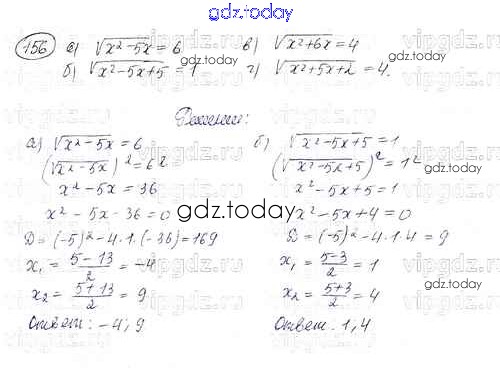 gdz.today
156 а) √x²-5x = 6 в) √x²+6x = 4
б) √x²-5x+5 = 1 г) √x²+5x+2 = 4.
Решение:
а) √x²-5x = 6
(√x²-5x)² = 6²
x²-5x = 36
x²-5x-36 = 0
D = (-5)²-4·1·(-36) = 169
x₁ = (5-13)/2 = -4
x₂ = (5+13)/2 = 9
Ответ: -4; 9
б) √x²-5x+5 = 1
(√x²-5x+5)² = 1²
x²-5x+5 = 1
x²-5x+4 = 0
D = (-5)²-4·1·4 = 9
x₁ = (5-3)/2 = 1
x₂ = (5+3)/2 = 4
Ответ: 1, 4
gdz.today
gdz.today
gdz.today
gdz.today
gdz.today